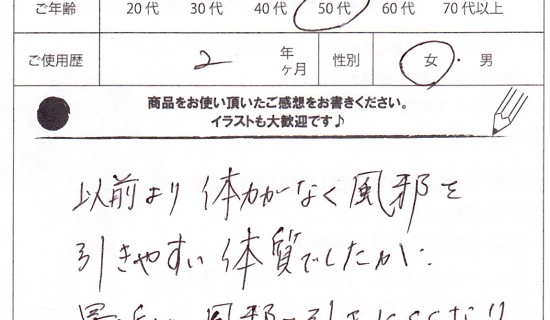 ご年齢 20代 30代 40代 50代 60代 70代以上
ご使用歴 2 年 ヶ月 性別 女・男
商品をお使い頂いたご感想をお書きください。
イラストも大歓迎です♪
以前より体力がなく風邪を
引きやすい体質でしたが、
風邪を引きにくくなり